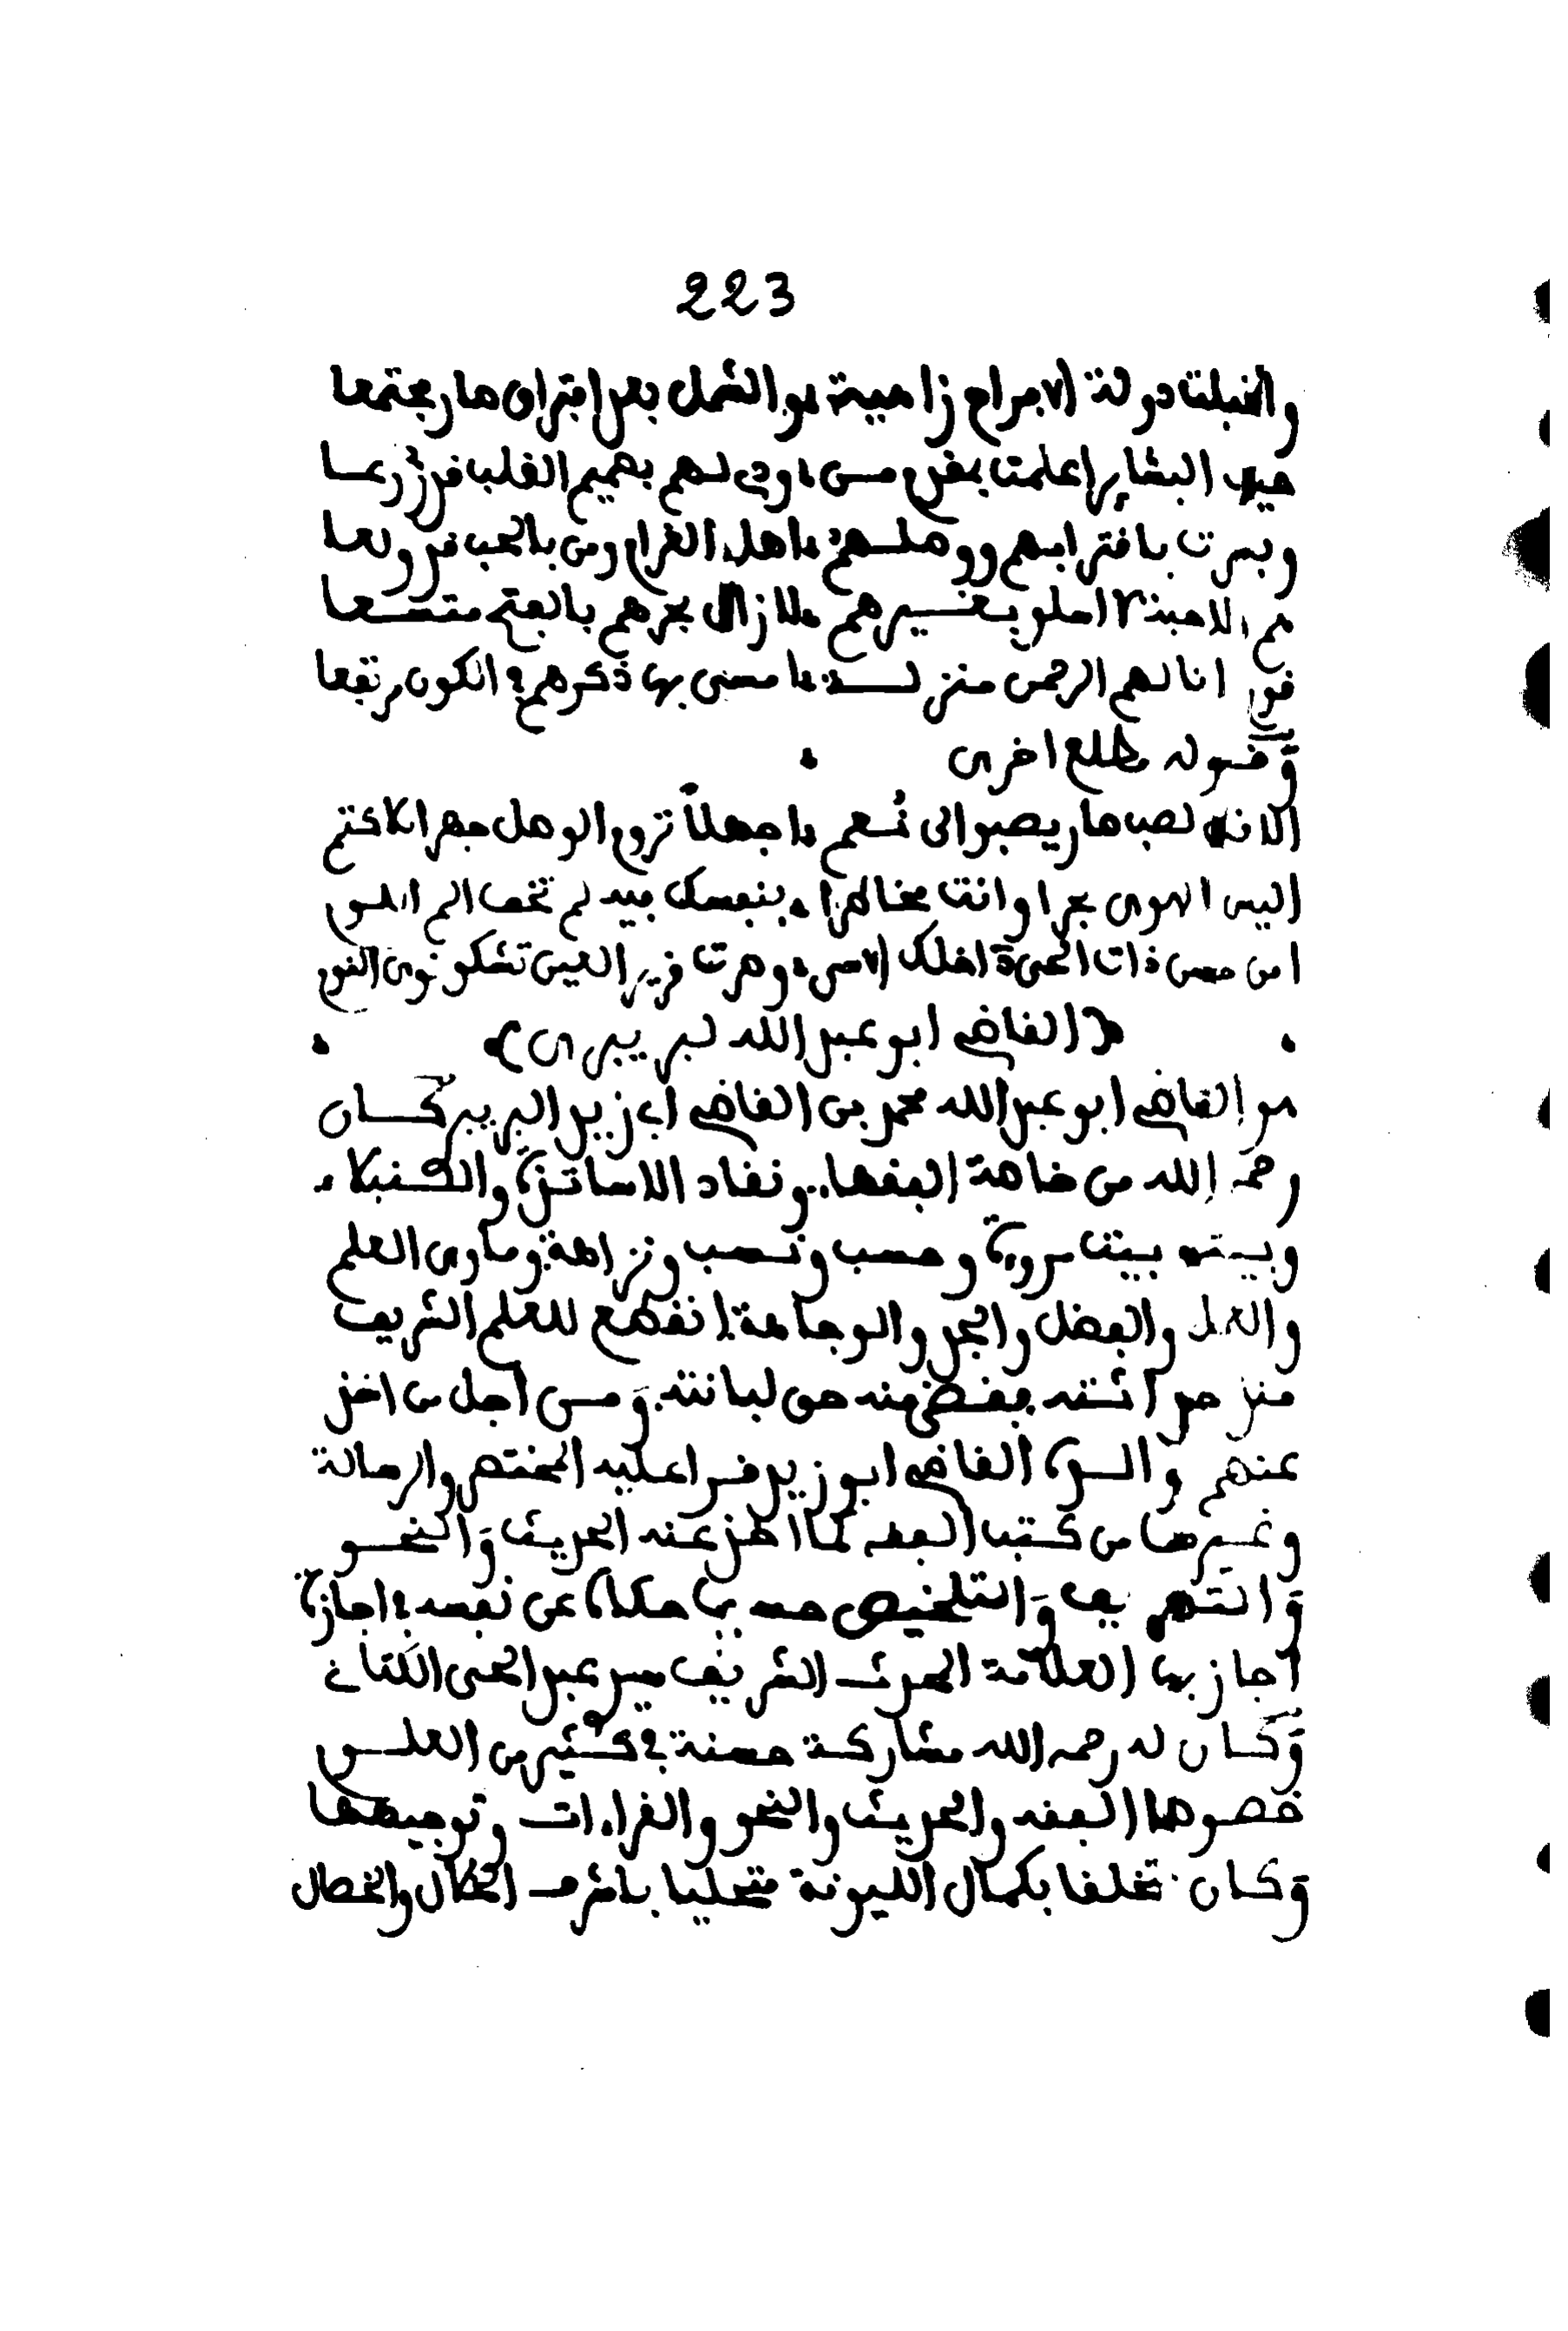 223
واقبلت دولة الافراح زاهية والشمل بعد افتراق صار مجتمعا
البشاير اعلمت بقدوم من ودي لهم بصميم القلب قد زرعا
وبشرت باقترابهم ووصلهم اهل الغرام ومن بالحب قد ولعا
هم الاحبة لا اسلو بغيرهم لا زال بدرهم بالفتح متسعا
قوم انالهم الرحمن منزلة امسى بها ذكرهم في الكون مرتفعا
وقوله مطلع اخرى
الا انه لصب صار يصبو الى نعم اجهلا تروم الوصل جهرا
اليس الهوى بحرا وانت مخالط بنفسك فيه لم تخف الم
امن حسن ذات اضلك وصرت قرير العين تشكو نوى النوم
﴿القاضي ابو عبد الله لبريبري﴾
هو القاضي ابو عبد الله محمد بن القاضي ابي زيد البريبر كان
رحمه الله من خاصة الفقهاء ونقاد الاساتذة والخطباء
وبيته بيت سرور وحسب ونسب ونزاهة وماوى العلم
والعمل والفضل والمجد والوجاهة انقطع للعلم الشريف
منذ حداثته فقضى منه حق لبانته ومن اجل من اخذ
عنهم والده القاضي ابو زيد قرا عليه المختصر والرسالة
وغيرها من كتب الفقه كما اخذ عنه الحديث والنحو
والتصريف والتلخيص حسبما حكاه عن نفسه في اجازة
اجاز بها العلامة المحدث الشريف سيد عبد الحي الكتاني
وكان له رحمه الله مشاركة حسنة في كثير من العلوم
خصوصا الفقه والحديث والنحو والقراءات وتوجيهها
وكان متخلقا بكمال الليونة متحليا باشرف الخلال والخصال